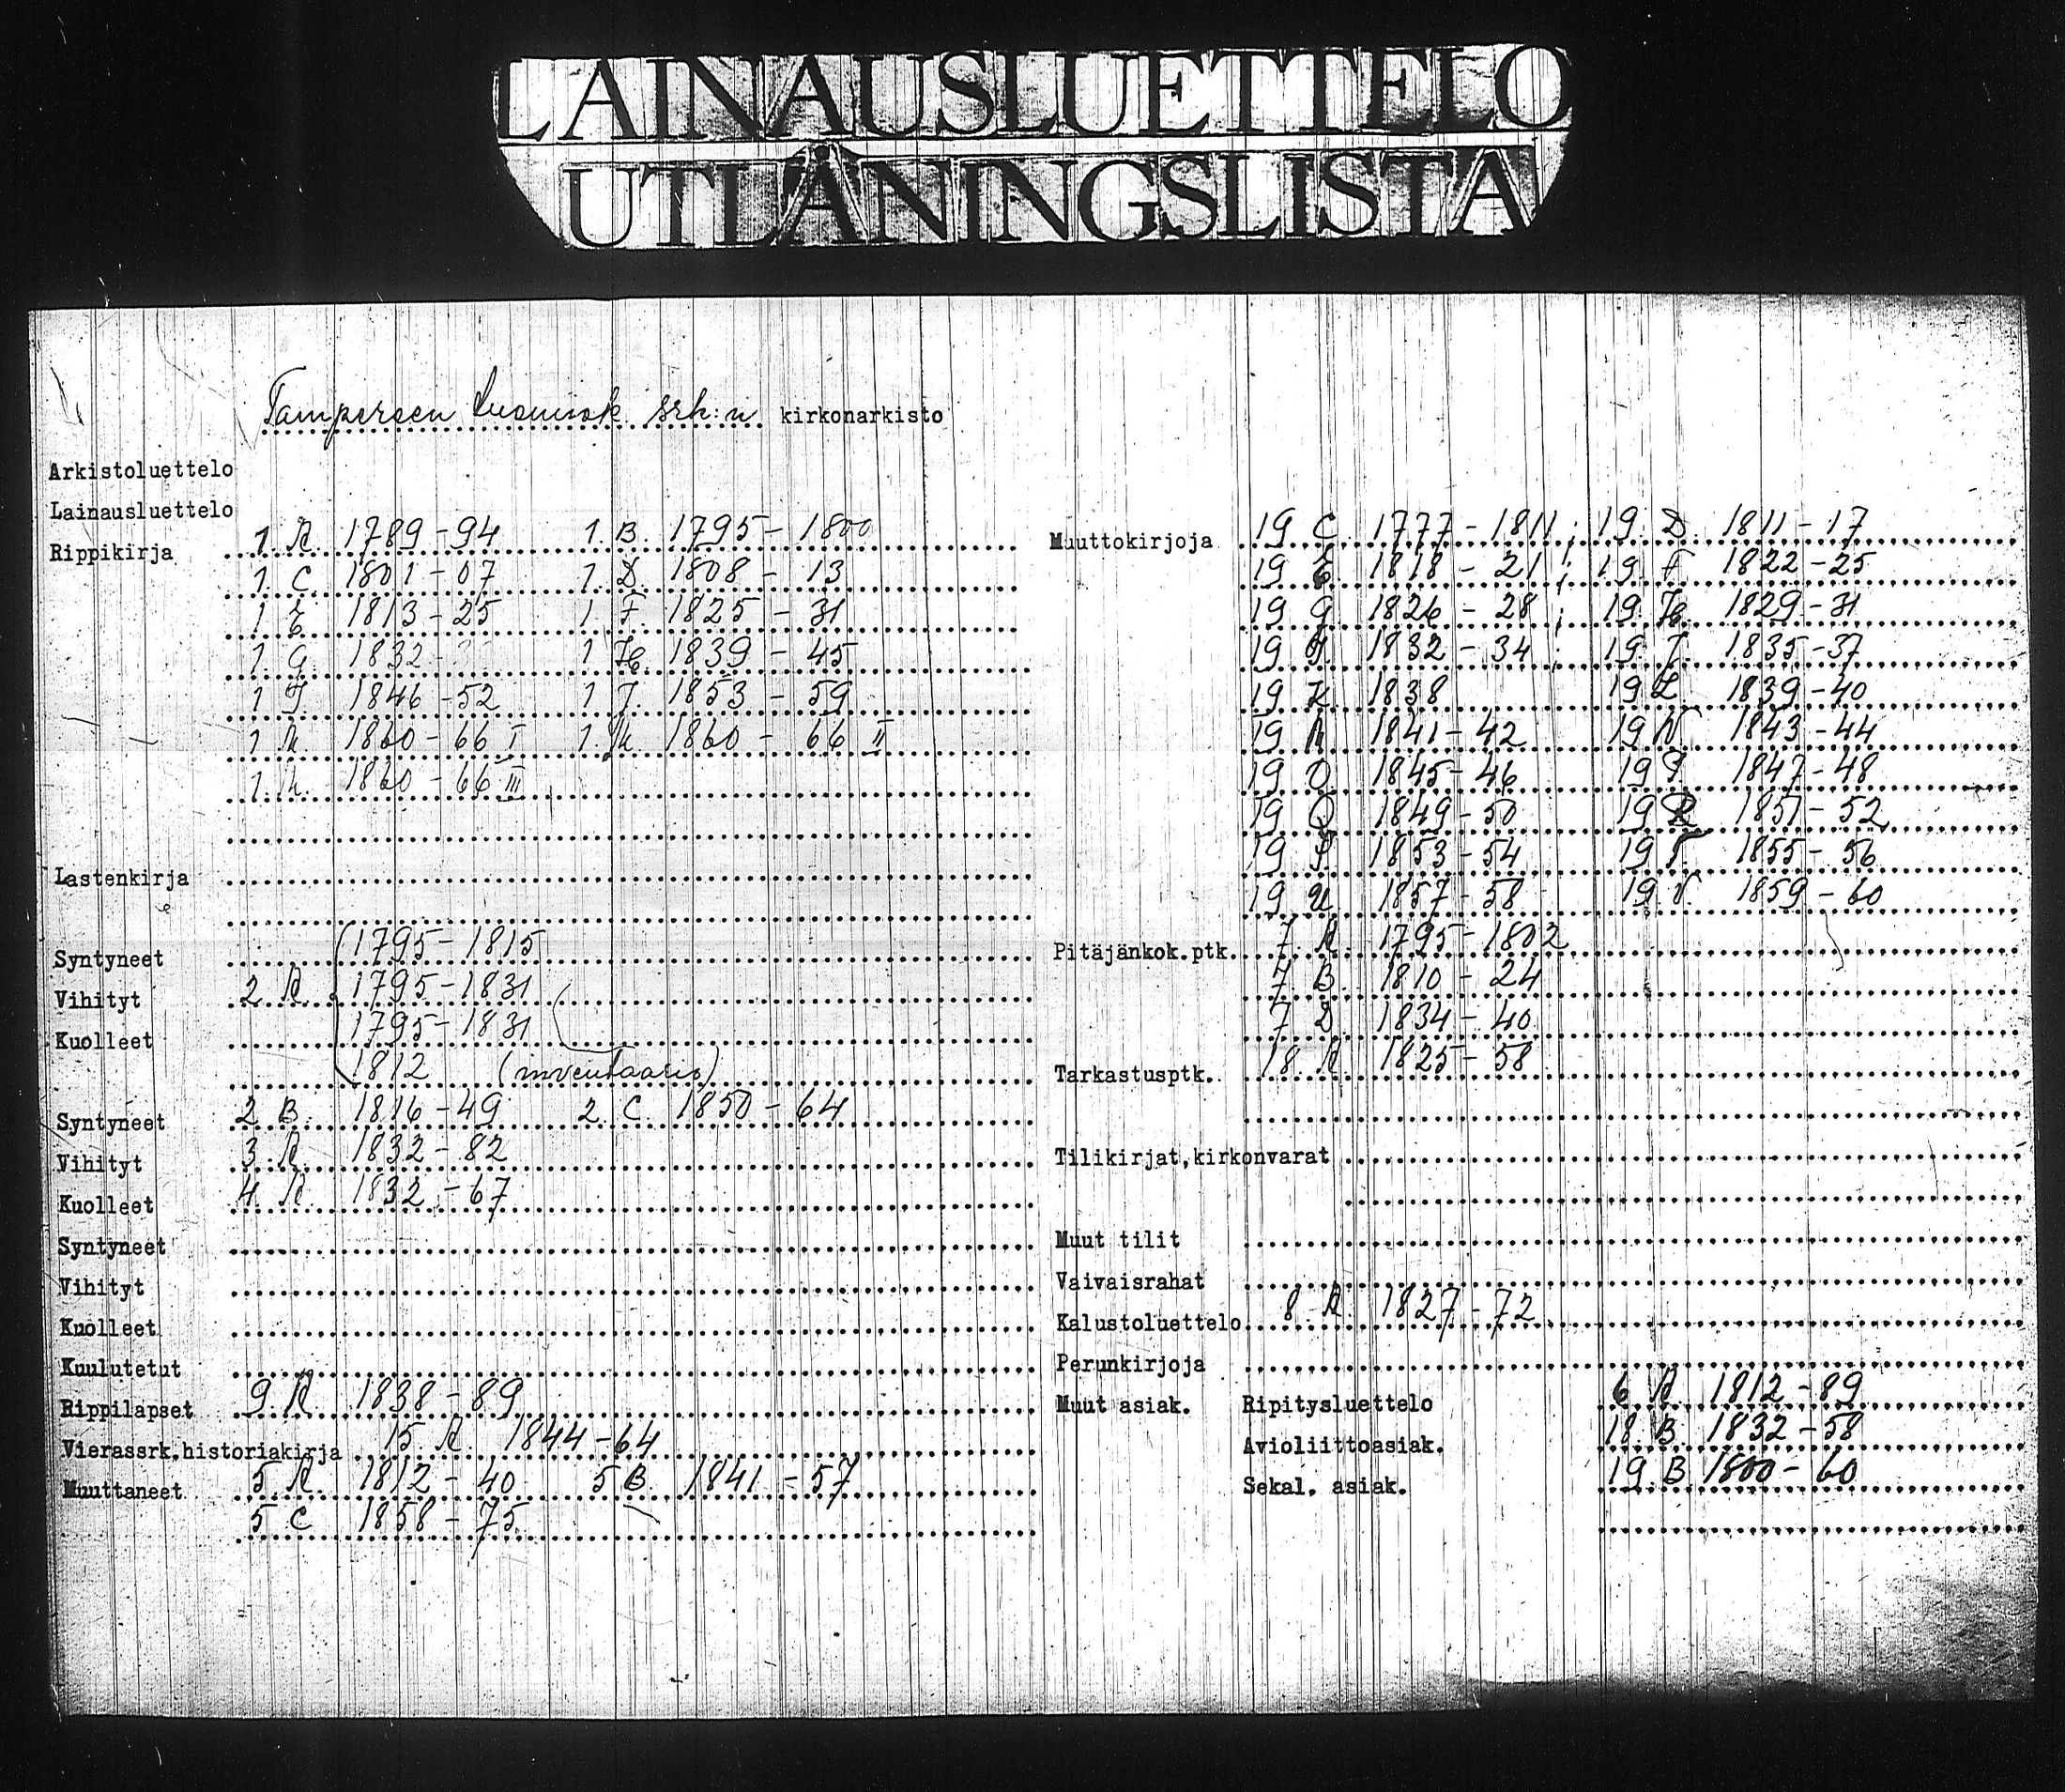 LAINAUSLUETTELO
UTLÅNINGSLISTA
Tampereen tuomiok. srk:n kirkonarkisto
Arkistoluettelo
Lainausluettelo
Rippikirja 1. A. 1789-94 1. B. 1795-1800
1. C. 1801-07 1. D. 1808-13
1. E. 1813-25 1. F. 1825-31
1. G. 1832- 1. H. 1839-45
1. I. 1846-52 1. J. 1853-59
1. K. 1860-66 I 1. K. 1860-66 II
1. K. 1860-66 III
Lastenkirja
Syntyneet 1795-1815
Vihityt 2. A. 1795-1831
Kuolleet 1795-1831
1812 (inventaario)
Syntyneet 2. B. 1816-49 2. C. 1850-64
Vihityt 3. A. 1832-82
Kuolleet 4. A. 1832-67
Syntyneet
Vihityt
Kuolleet
Kuulutetut
Rippilapset 9. A. 1838-89
Vierassrk.historiakirja 15. A. 1844-64
Muuttaneet 5. A. 1812-40 5 B. 1841-57
5 C 1858-75
Muuttokirjoja 19 C. 1777-1811; 19. D. 1811-17
19 E. 1818-21; 19. F. 1822-25
19 G 1826-28; 19. H. 1829-31
19 I. 1832-34; 19. J. 1835-37
19 K 1838 19 L 1839-40
19 M 1841-42 19 N. 1843-44
19 O 1845-46 19 P. 1847-48
19 Q 1849-50 19 R 1851-52
19 S. 1853-54 19 T. 1855-56
19 U. 1857-58 19 V. 1859-60
Pitäjänkok.ptk. 7. A. 1795-1802
7 B 1810-24
7 D. 1834-40
Tarkastusptk. 18. A 1825-58
Tilikirjat,kirkonvarat
Muut tilit
Vaivaisrahat
Kalustoluettelo 8 A. 1827-72
Perunkirjoja
Muut asiak. Ripitysluettelo 6 A. 1812-89
Avioliittoasiak. 18. B. 1832-58
Sekal. asiak. 19 B 1800-60